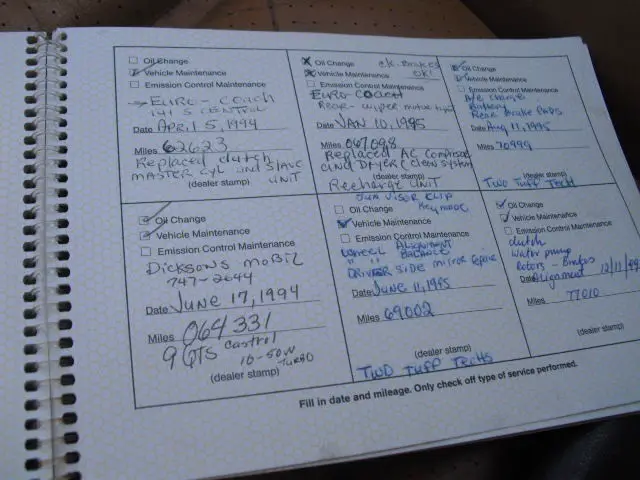 Oil Change
Vehicle Maintenance
Emission Control Maintenance
→ EURO - COACH
141 S CENTRAL
Date APRIL 5, 1994
Miles 62623
Replaced clutch
MASTER CYL and SLAVE
(dealer stamp) UNIT
Oil Change ck. Brakes
Vehicle Maintenance OK!
Emission Control Maintenance
EURO COACH
Rear - wiper motor
Date JAN 10, 1995
Miles 067,098
Replaced AC Compressor
and DRYER (clean system
(dealer stamp)
Recharge UNIT
Oil Change
Vehicle Maintenance
Emission Control Maintenance
A/C charge
Battery
Rear Brake PADS
Date Aug 11, 1995
Miles 70999
(dealer stamp)
TWO TUFF TECHS
Oil Change
Vehicle Maintenance
Emission Control Maintenance
Dicksons mobil
747-2644
Date JUNE 17, 1994
Miles 064331
9 QTS Castrol
10-50W
TURBO
(dealer stamp)
SUN VISOR CLIP
Oil Change Key made
Vehicle Maintenance
Emission Control Maintenance
Wheel ALIGNMENT
" " BALANCE
DRIVER side mirror repair
Date June 11, 1995
Miles 69002
(dealer stamp)
TWO TUFF TECHS
Oil Change
Vehicle Maintenance
Emission Control Maintenance
clutch
Water pump
Rotors - Brakes
Date Alignment 12/11/95
Miles 77010
(dealer stamp)
Fill in date and mileage. Only check off type of service performed.